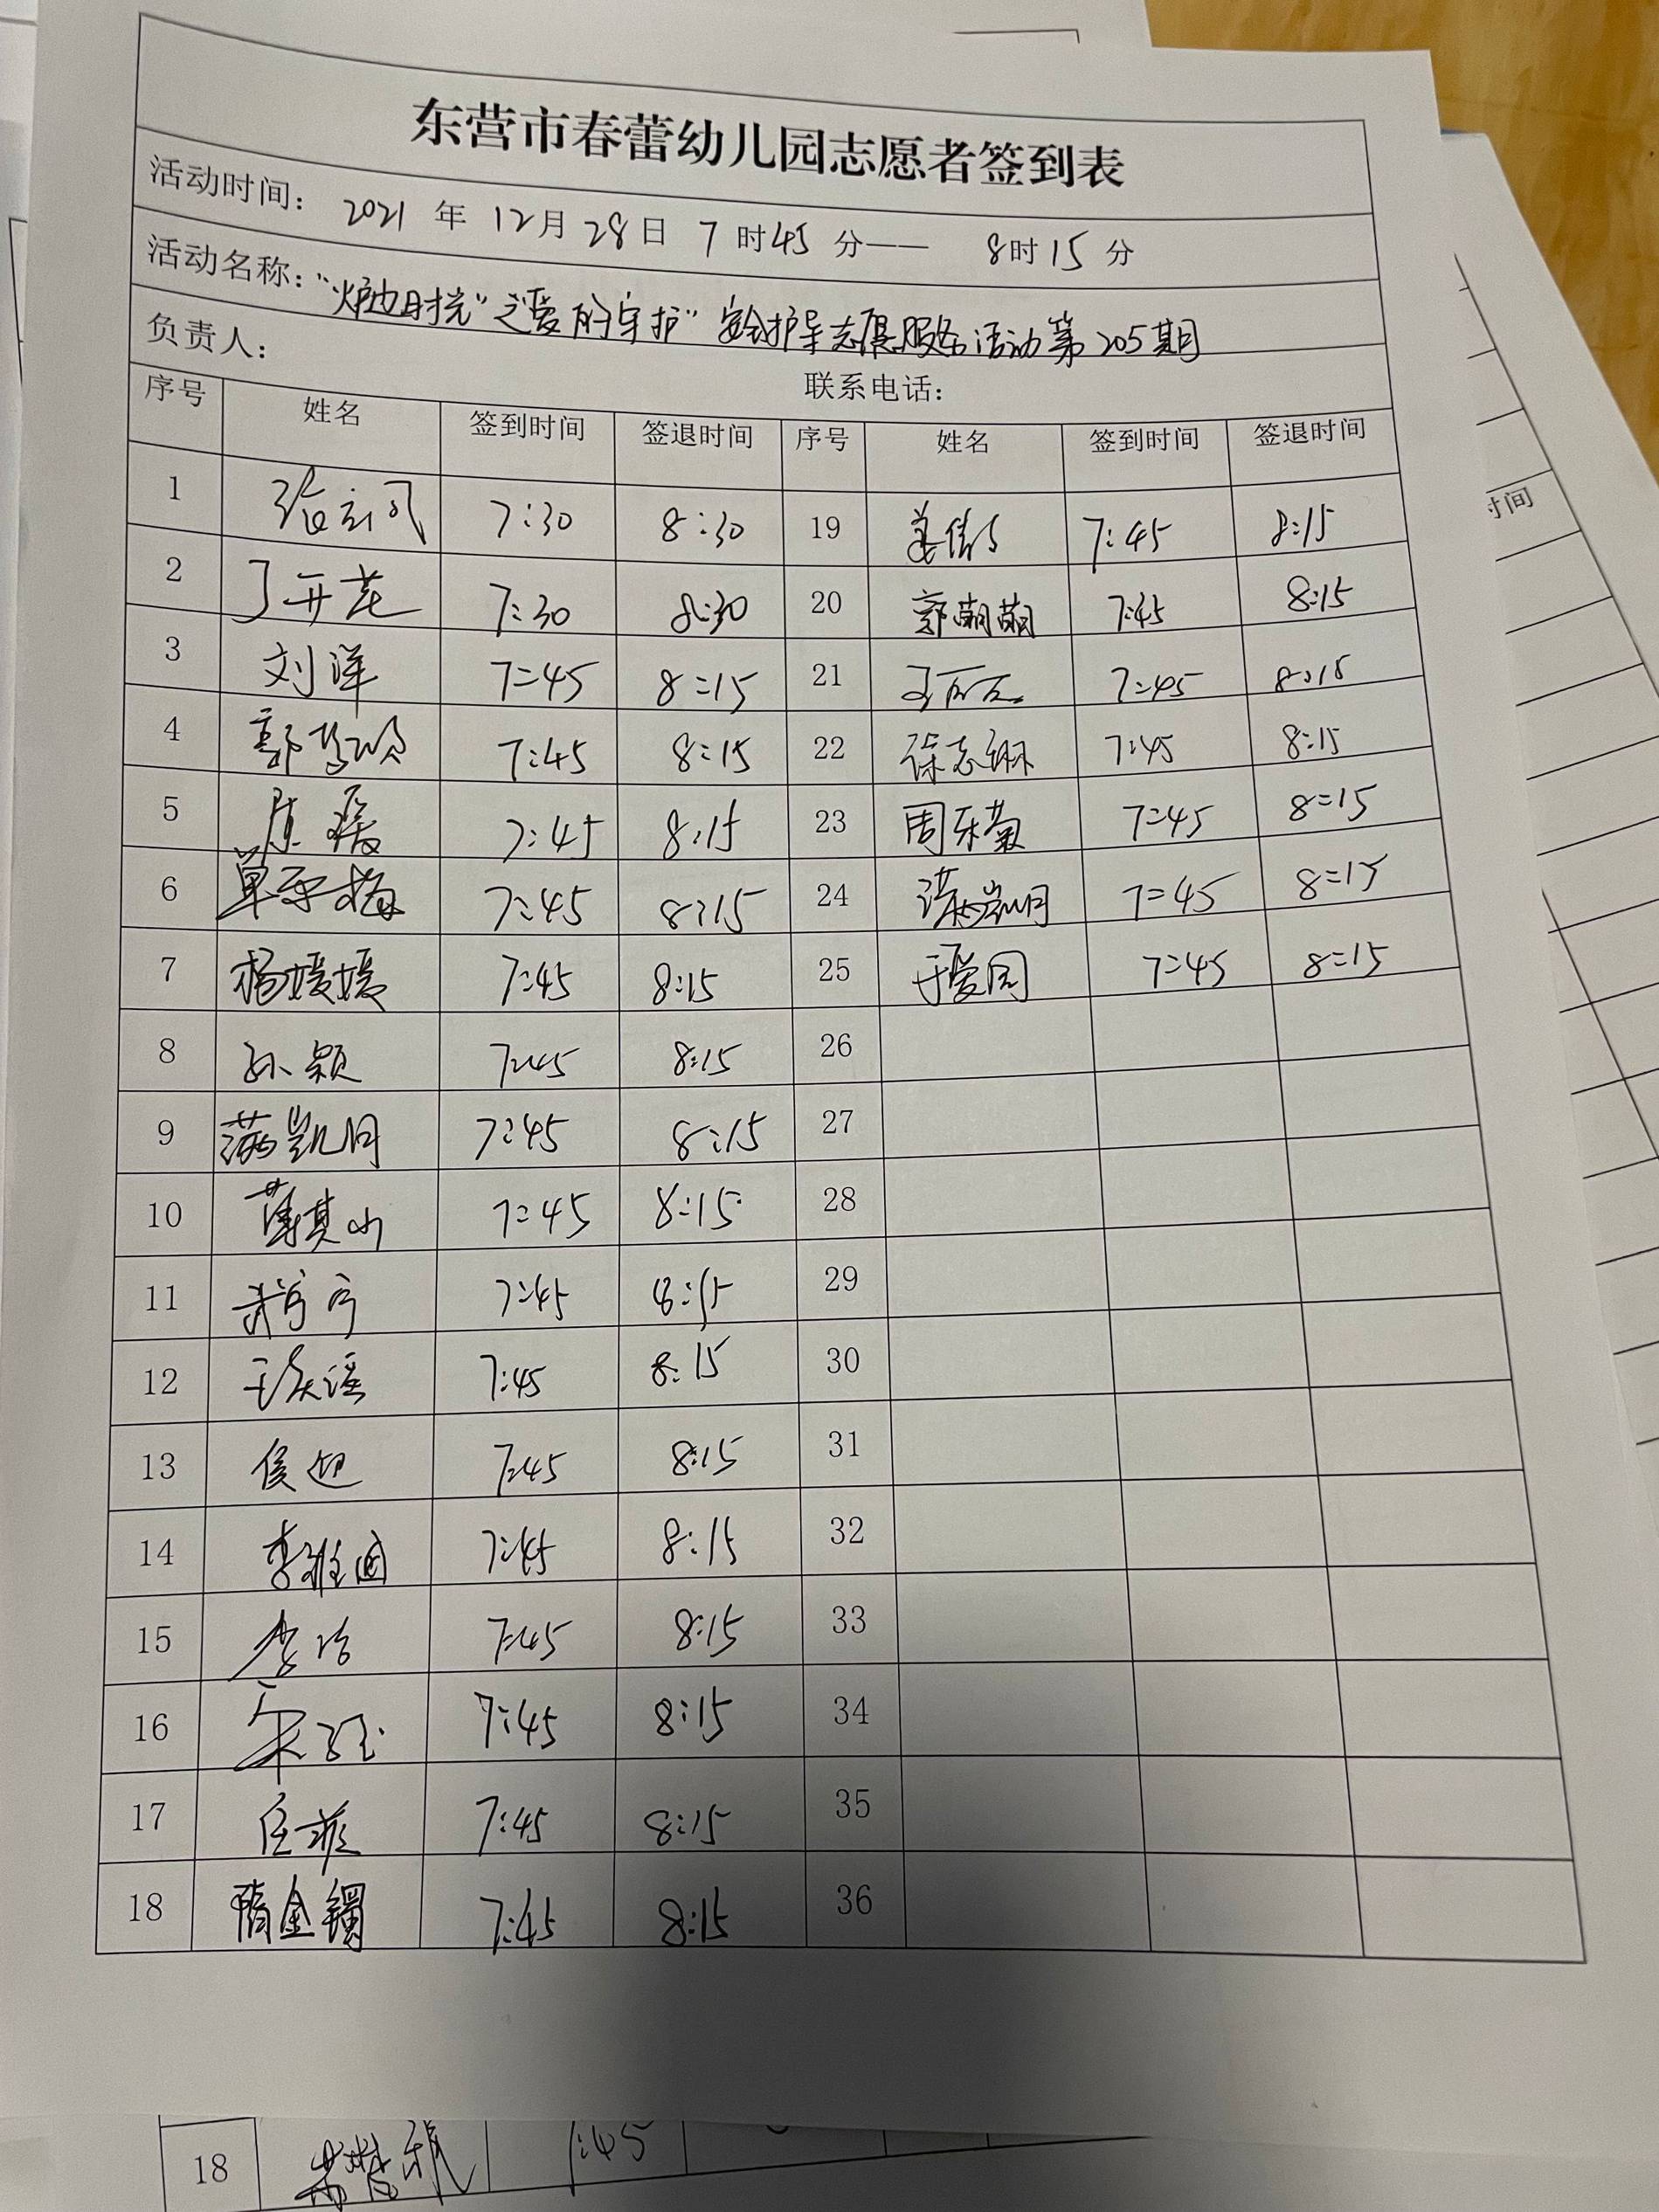 东营市春蕾幼儿园志愿者签到表
活动时间： 2021 年 12月 28日 7 时45 分—— 8时15 分
活动名称：“炉边时光”之“爱的守护”安全护导志愿服务活动第205期
负责人： 联系电话：
序号 姓名 签到时间 签退时间 序号 姓名 签到时间 签退时间
1 7:30 8:30 19 7:45 8:15
2 丁开芝 7:30 8:30 20 郭萌萌 7:45 8:15
3 刘洋 7:45 8:15 21 7:45 8:15
4 郭梦玲 7:45 8:15 22 徐志琳 7:45 8:15
5 陈瑗 7:45 8:15 23 周乐菊 7:45 8:15
6 单 梅 7:45 8:15 24 7:45 8:15
7 杨媛媛 7:45 8:15 25 于爱国 7:45 8:15
8 孙颖 7:45 8:15 26
9 满凯月 7:45 8:15 27
10 薄其山 7:45 8:15 28
11 7:45 8:15 29
12 7:45 8:15 30
13 侯迎 7:45 8:15 31
14 李雅迪 7:45 8:15 32
15 李 7:45 8:15 33
16 宋 7:45 8:15 34
17 任菲 7:45 8:15 35
18 隋金镯 7:45 8:15 36
时间
18 1:45